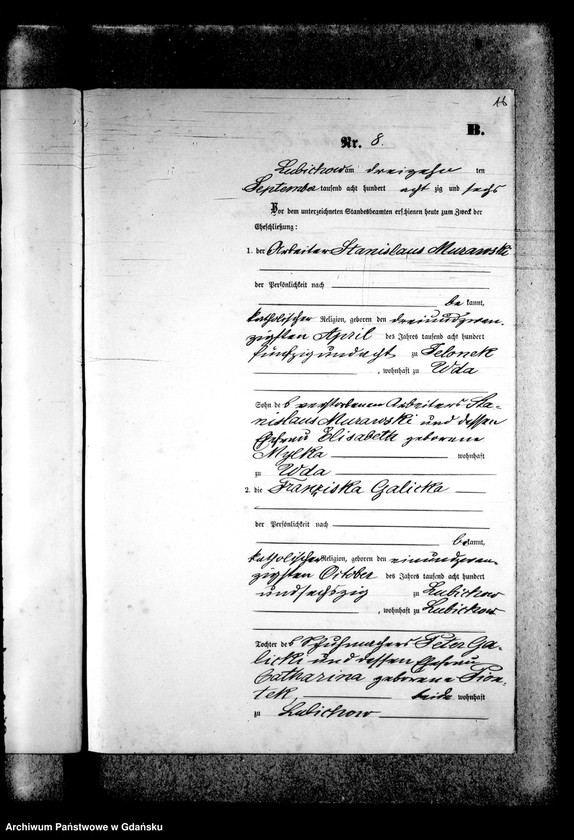 16
B.
Nr. 8.
Lubichow am dreizehn ten
September tausend acht hundert acht zig und sechs
Vor dem unterzeichneten Standesbeamten erschienen heute zum Zweck der
Eheschließung:
1. der Arbeiter Stanislaus Murawski
der Persönlichkeit nach
be kannt,
katholischer Religion, geboren den dreiundzwan-
zigsten April des Jahres tausend acht hundert
fünfzig und acht zu Zelonek
, wohnhaft zu Wda
Sohn des verstorbenen Arbeiters Sta-
nislaus Murawski und dessen
Ehefrau Elisabeth geborene
Mylka wohnhaft
zu Wda
2. die Franziska Galicka
der Persönlichkeit nach
be kannt,
katholischer Religion, geboren den einundzwan-
zigsten October des Jahres tausend acht hundert
und sechszig zu Lubichow
, wohnhaft zu Lubichow
Tochter des Schuhmachers Peter Ga-
licki und dessen Ehefrau
Catharina geborene Pion-
tek, beide wohnhaft
zu Lubichow
Archiwum Państwowe w Gdańsku